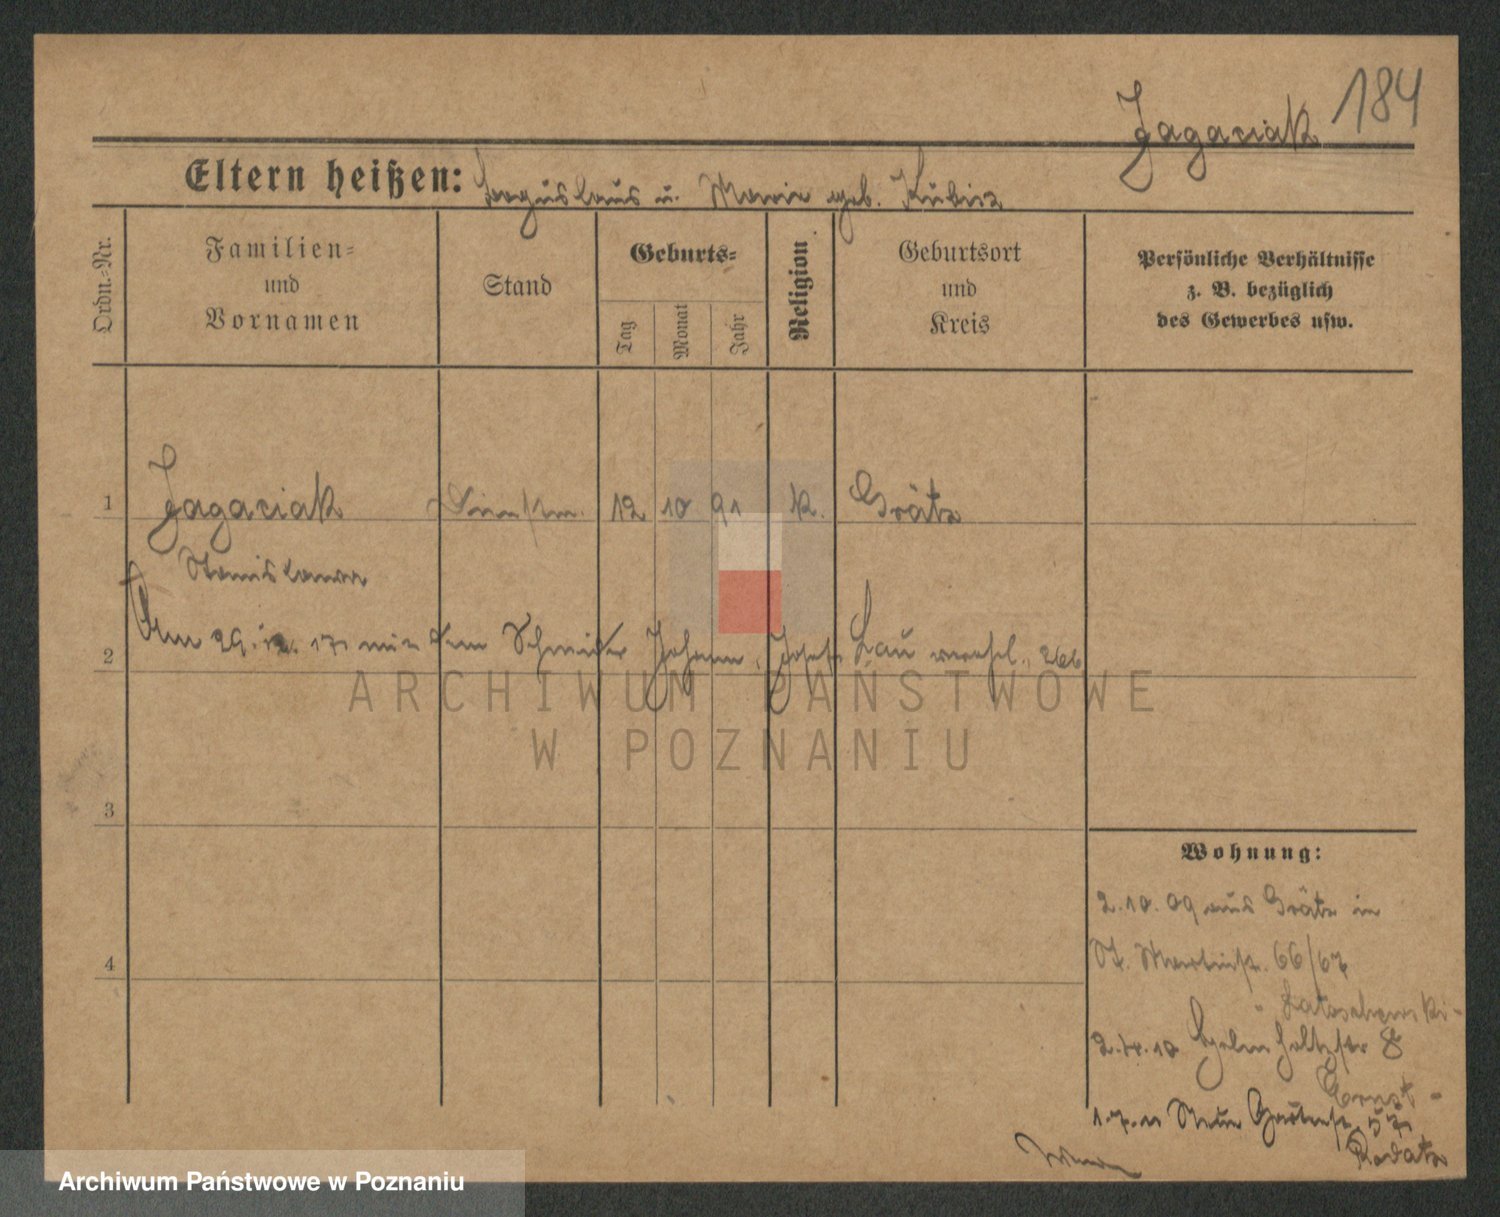 184
Jagaciak
Eltern heißen: Boguslaus u. Marie geb. Kubisz
Ordn.-Nr.
Familien- und Vornamen
Stand
Geburts-
Tag
Monat
Jahr
Religion
Geburtsort und Kreis
Persönliche Verhältnisse
z. B. bezüglich
des Gewerbes usw.
1
Jagaciak 12 10 91 k. Grätz
Stanislawa
2
Am 29. 12. 17. mit dem Schneider Johann, Josef Lau verehel. 266
ARCHIWUM PAŃSTWOWE
W POZNANIU
3
Wohnung:
2.10.09 aus Grätz in
St. Martinstr. 66/67
4
2.4.10 8
Ernst -
1.7.11 Neue Gartenstr. 57
Radatz
Archiwum Państwowe w Poznaniu